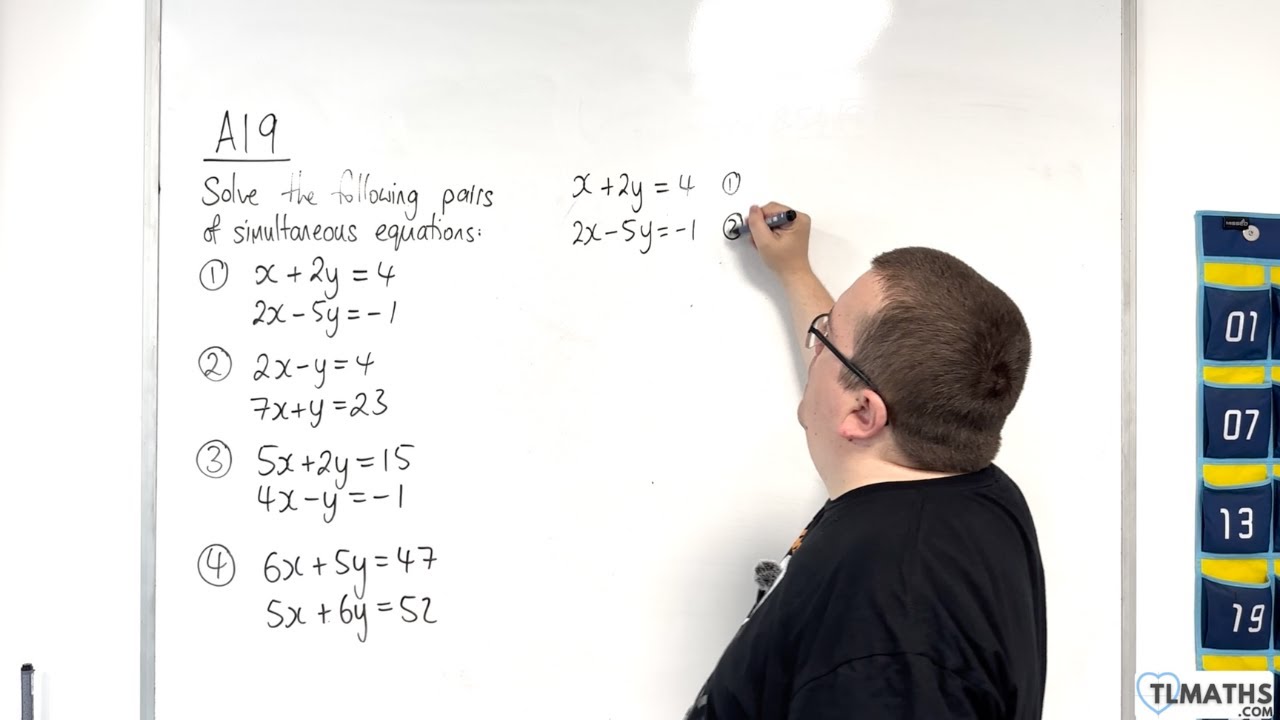 A19
Solve the following pairs
of simultaneous equations:
① x + 2y = 4
2x - 5y = -1
② 2x - y = 4
7x + y = 23
③ 5x + 2y = 15
4x - y = -1
④ 6x + 5y = 47
5x + 6y = 52
x + 2y = 4 ①
2x - 5y = -1 ②
01
07
13
19
TLMATHS
.COM